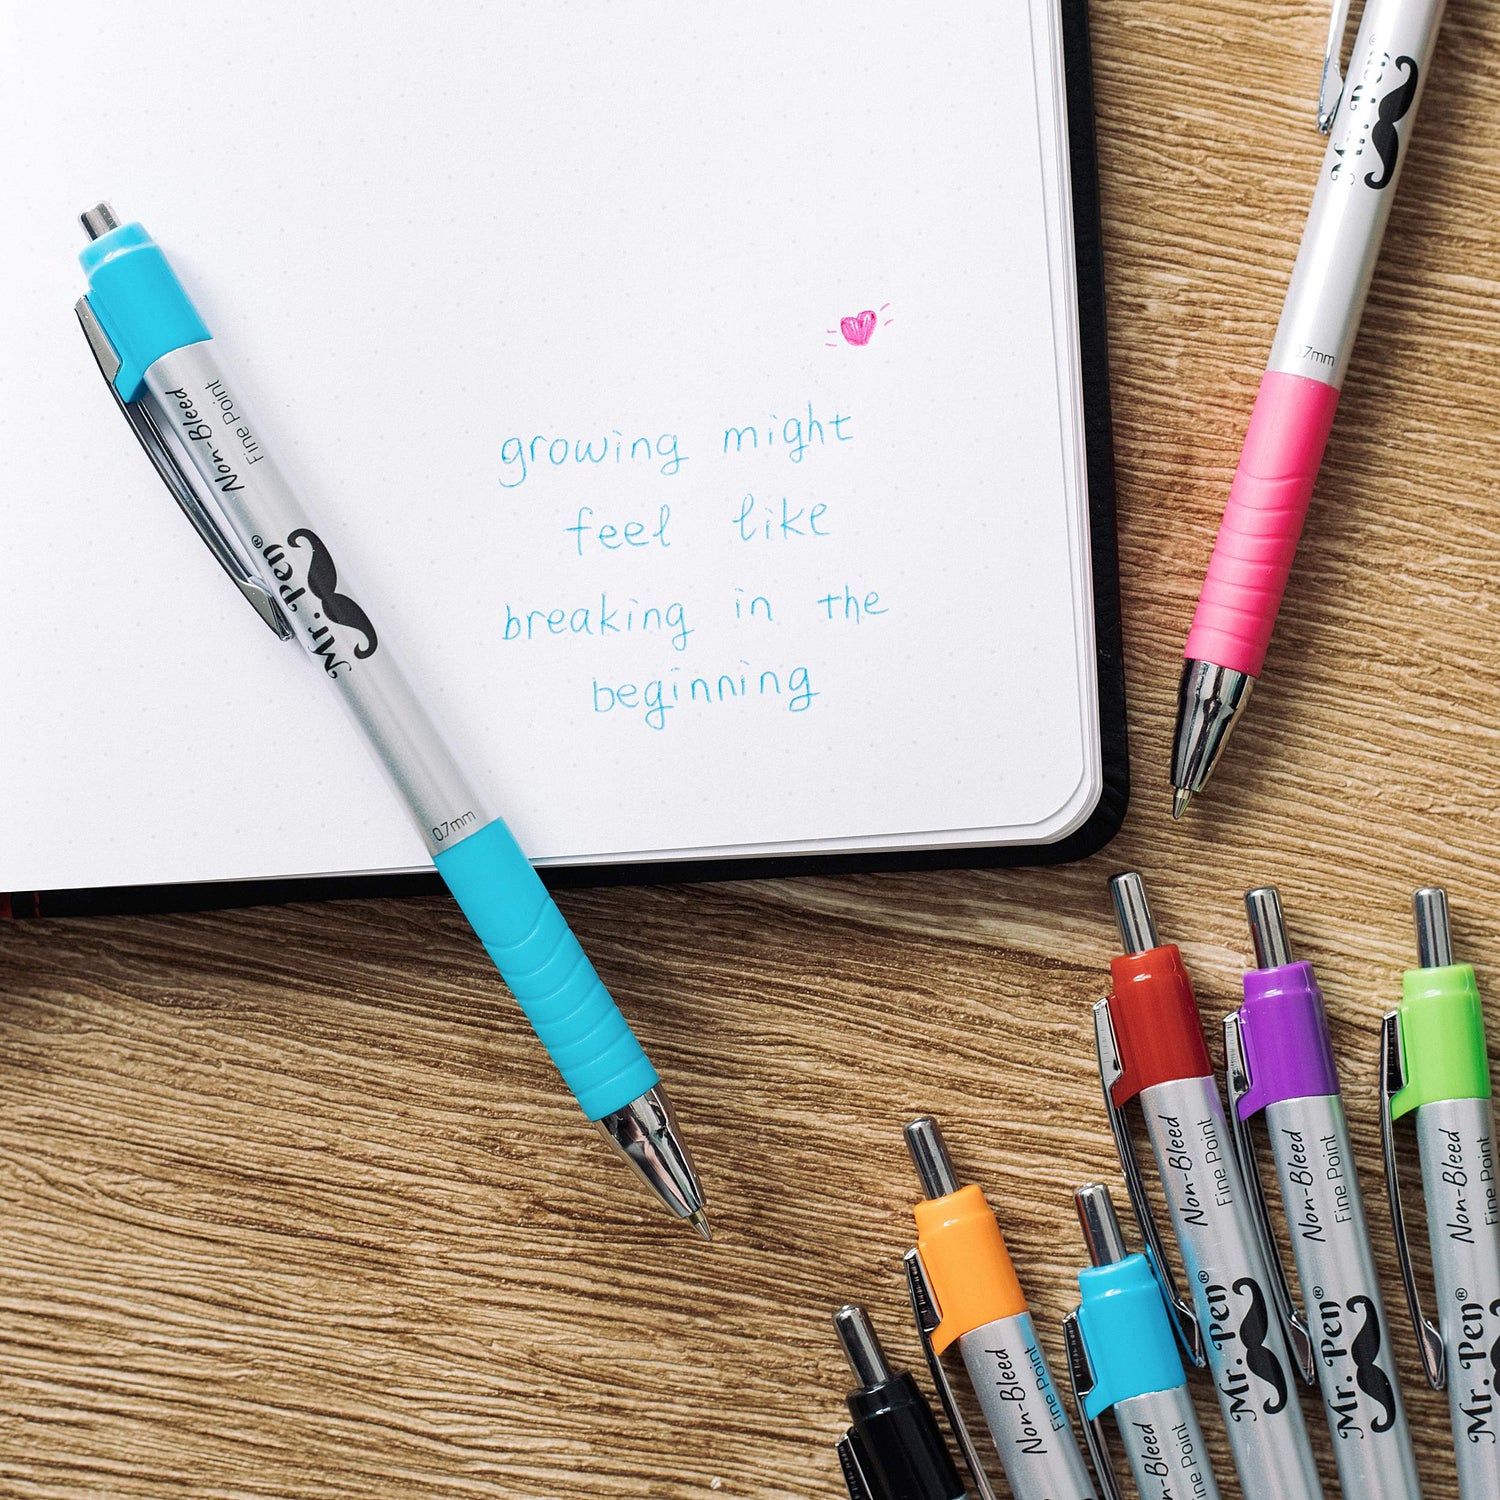 growing might
feel like
breaking in the
beginning
Non-Bleed
Fine Point
Mr. Pen®
0.7mm
Mr. Pen®
0.7mm
Non-Bleed
Fine Point
Mr. Pen®
Non-Bleed
Fine Point
Mr. Pen®
Non-Bleed
Fine Point
Mr. Pen®
Non-Bleed
Fine Point
Non-Bleed
Fine Point